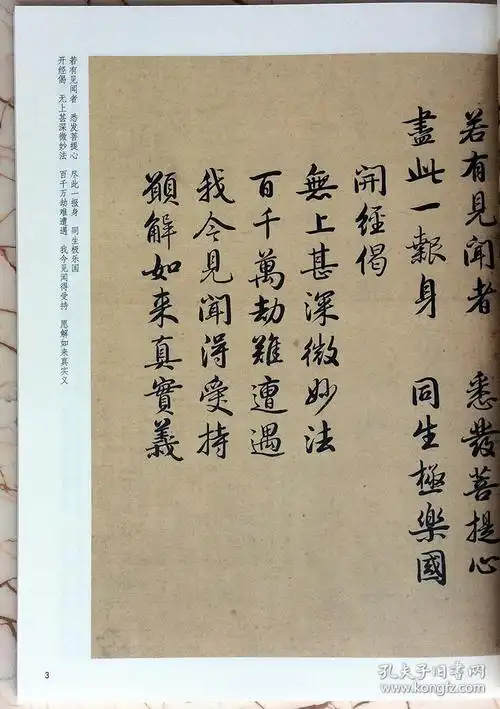 若有見聞者　悉發菩提心
盡此一報身　同生極樂國
開經偈
無上甚深微妙法
百千萬劫難遭遇
我今見聞得受持
願解如来真實義
若有见闻者　悉发菩提心　尽此一报身　同生极乐国
开经偈　无上甚深微妙法　百千万劫难遭遇　我今见闻得受持　愿解如来真实义
3
孔夫子旧书网
www.kongfz.com